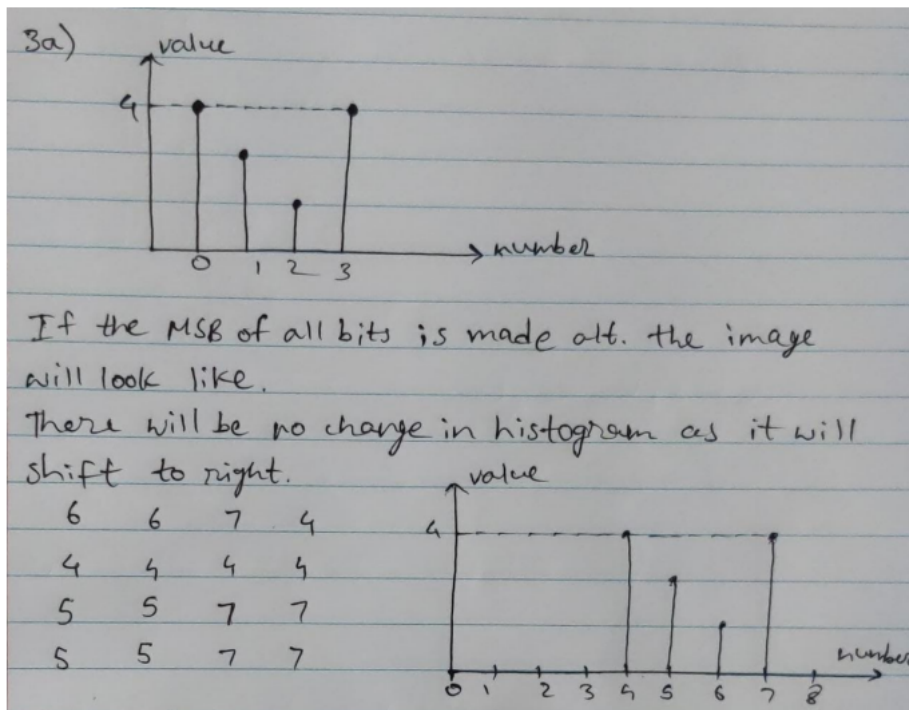 3a)
value
4
0 1 2 3
number
If the MSB of all bits is made alt. the image
will look like.
There will be no change in histogram as it will
shift to right.
6 6 7 4
4 4 4 4
5 5 7 7
5 5 7 7
value
4
number
0 1 2 3 4 5 6 7 8